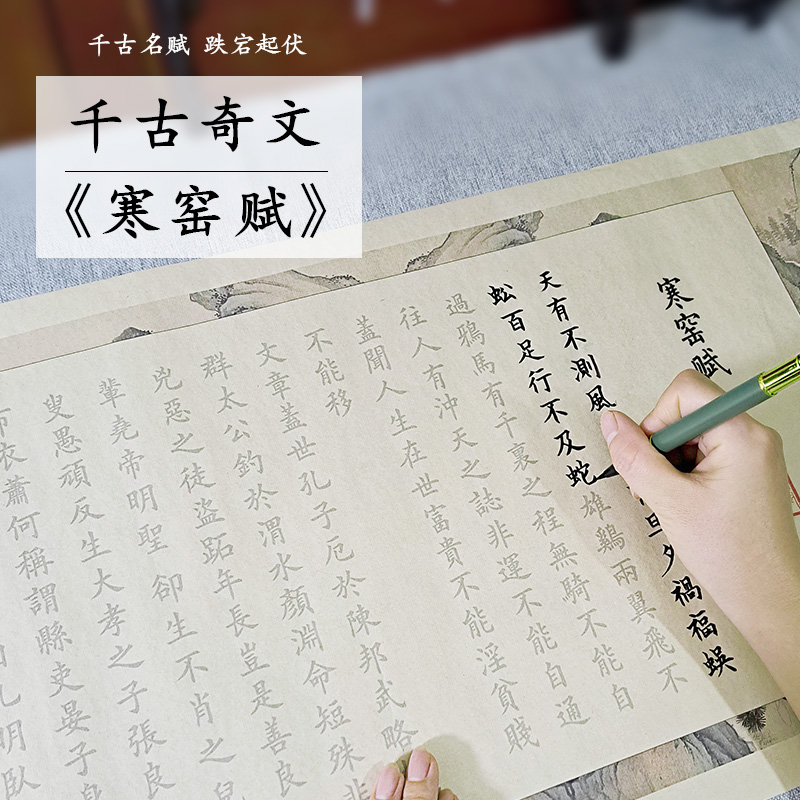 千古名赋 跌宕起伏
千古奇文
《寒窑赋》
寒窑賦
天有不測風旦夕禍福蜈
蚣百足行不及蛇雄鷄兩翼飛不
過鴉馬有千裏之程無騎不能自
往人有沖天之誌非運不能自通
蓋聞人生在世富貴不能淫貧賤
不能移
文章蓋世孔子厄於陳邦武略
群太公釣於渭水顏淵命短殊非
兇惡之徒盜跖年長豈是善良
輩堯帝明聖卻生不肖之兒
叟愚頑反生大孝之子張良
布衣蕭何稱謂縣吏晏子
孔明臥